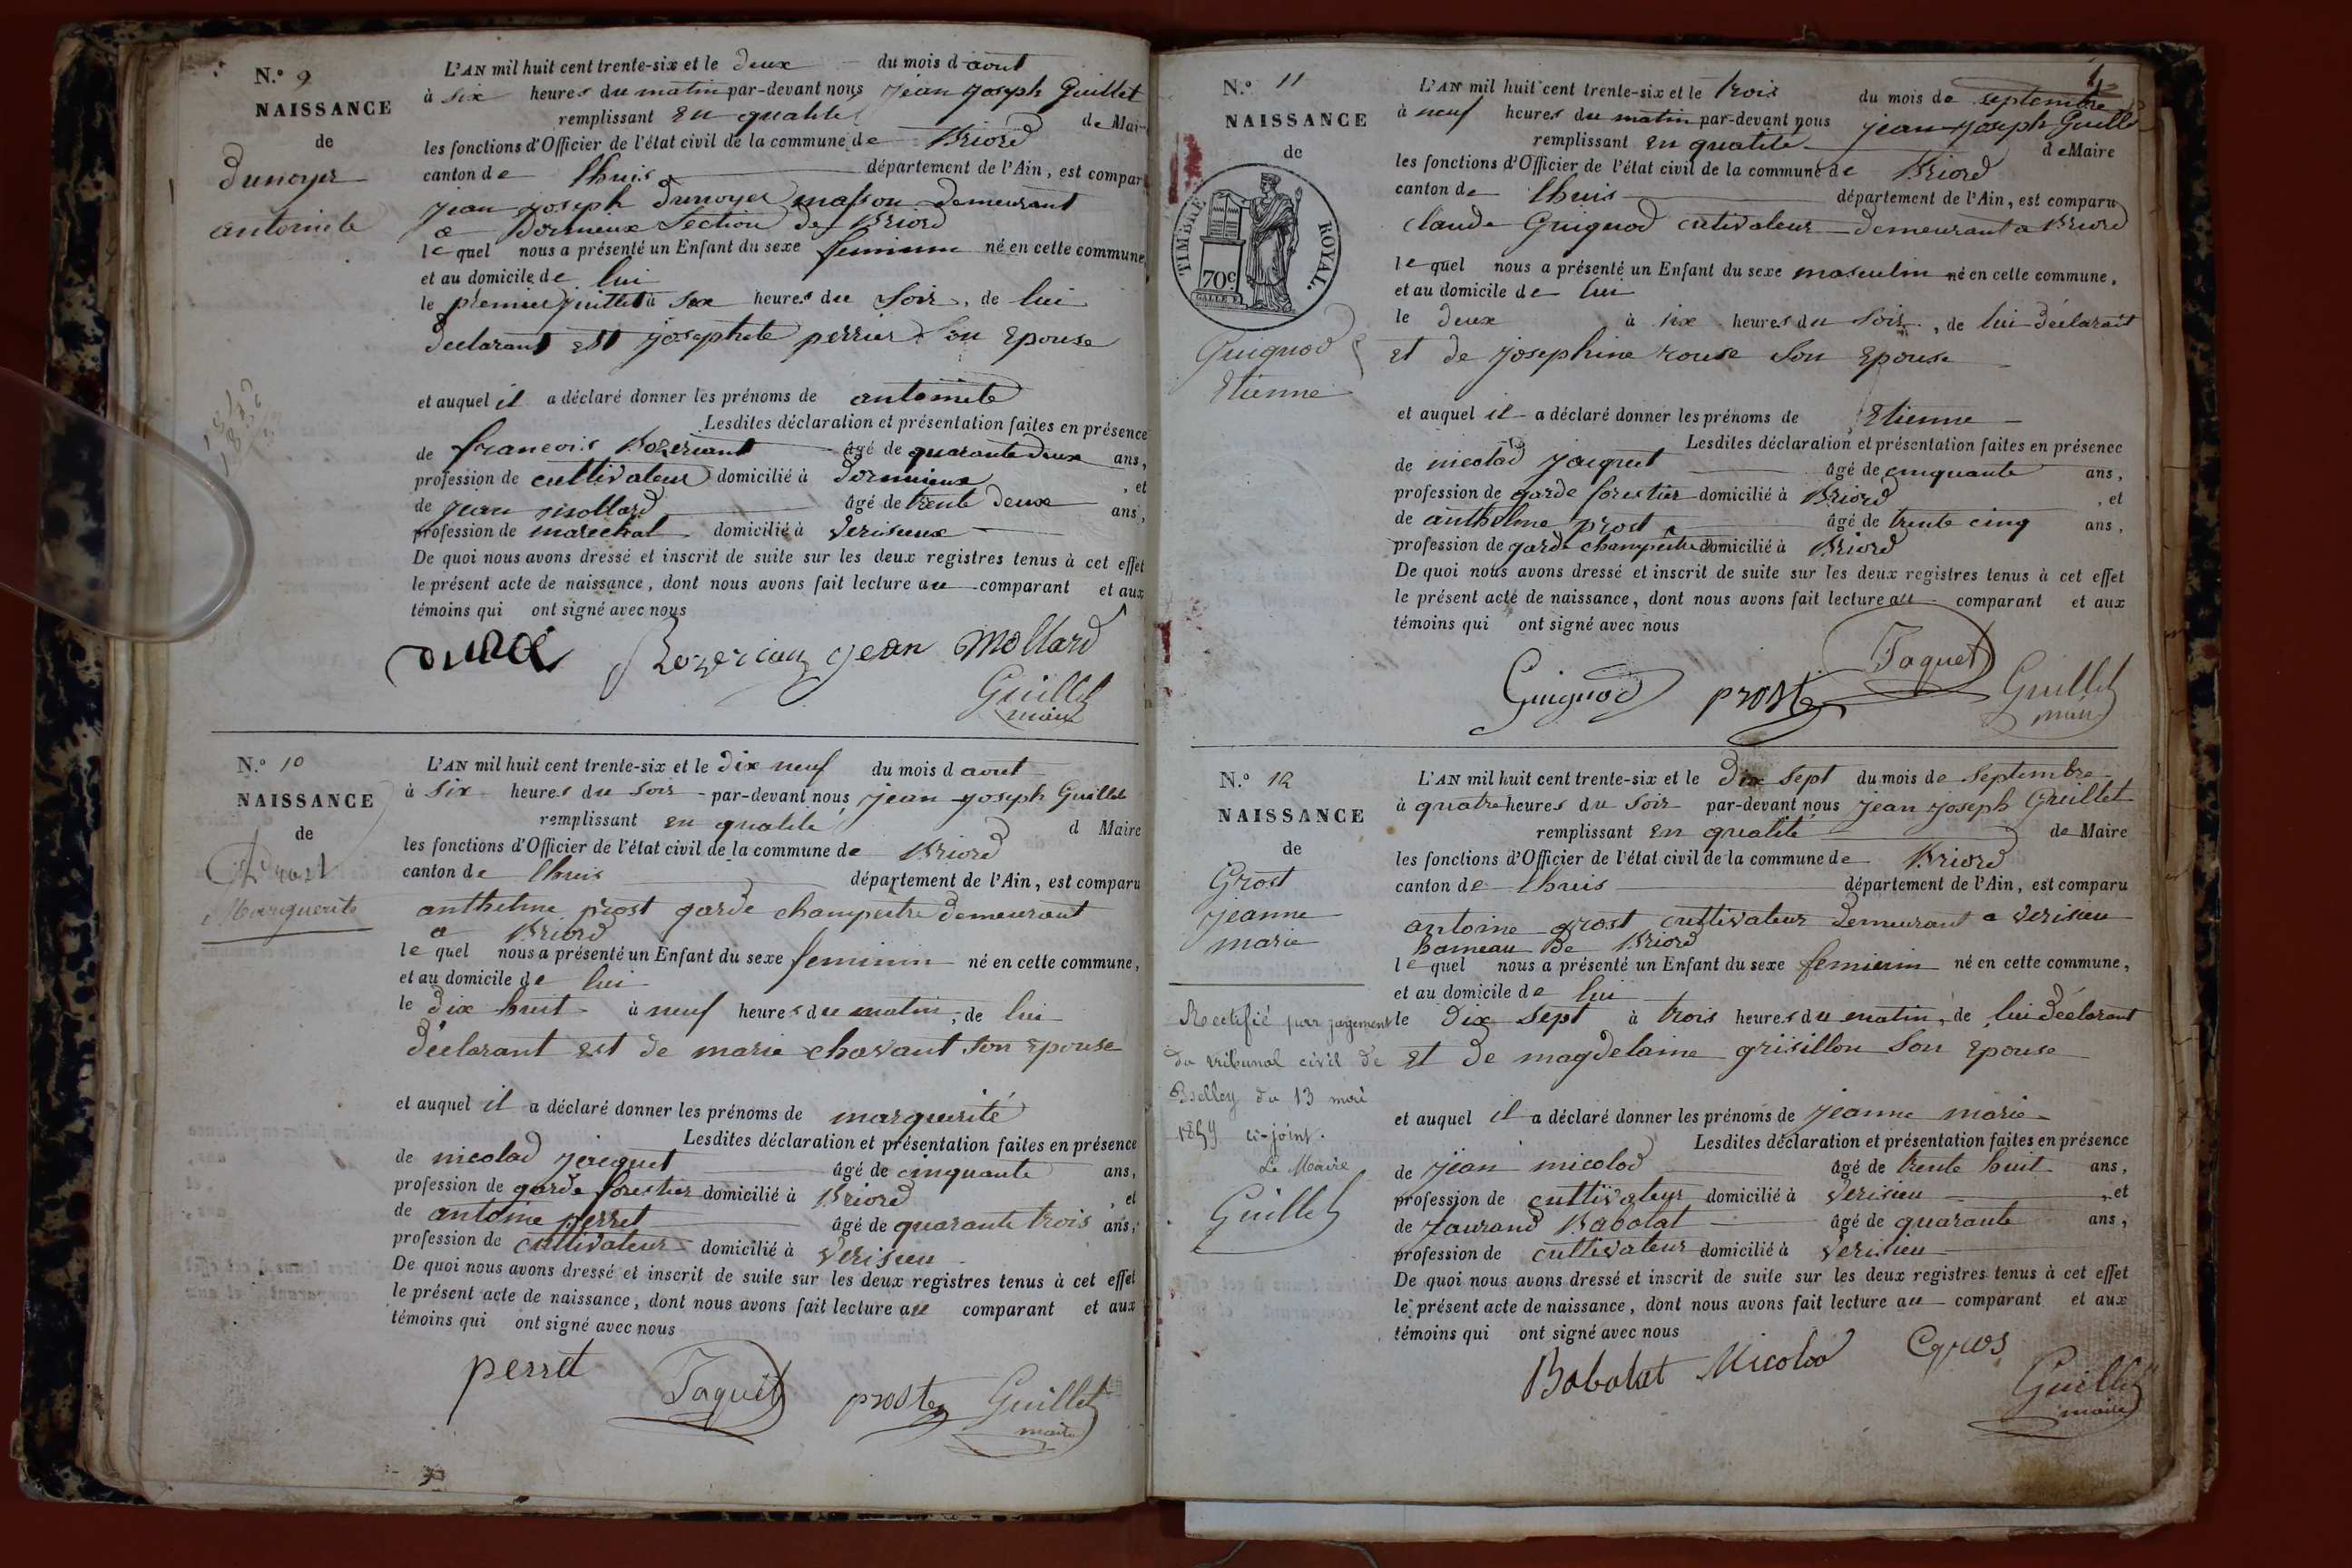 N.º 9
NAISSANCE
de
Dunoyer
antoinete
L'AN mil huit cent trente-six et le deux du mois d aout
à six heures du matin par-devant nous jean joseph Guillet
remplissant en qualité de Mai-
les fonctions d'Officier de l'état civil de la commune de Briord
canton de lhuis département de l'Ain, est compar
jean joseph Dunoyer masson demeurant
a Dornieux Section de Briord
le quel nous a présenté un Enfant du sexe feminin né en cette commune
et au domicile de lui
le premier juillet à six heures du soir, de lui
declarant est josephete perrier son epouse
et auquel il a déclaré donner les prénoms de antoinete
Lesdites déclaration et présentation faites en présence
de francois Bozeriant âgé de quarante deux ans,
profession de cultivateur domicilié à dornieux, et
de jean mollard âgé de trente deux ans,
profession de marechal domicilié à Verisieux
De quoi nous avons dressé et inscrit de suite sur les deux registres tenus à cet effet
le présent acte de naissance, dont nous avons fait lecture au comparant et aux
témoins qui ont signé avec nous
jean Mollard
Guillet
maire
N.º 10
NAISSANCE
de
Prost
Marguerite
L'AN mil huit cent trente-six et le dix neuf du mois d aout
à six heures du soir par-devant nous jean joseph Guillet
remplissant en qualité d Maire
les fonctions d'Officier de l'état civil de la commune de Briord
canton de lhuis département de l'Ain, est comparu
anthelme prost garde champetre demeurant
a Briord
le quel nous a présenté un Enfant du sexe feminin né en cette commune,
et au domicile de lui
le dix huit à neuf heures du matin, de lui
déclarant est de marie chavant son epouse
et auquel il a déclaré donner les prénoms de marguerité
Lesdites déclaration et présentation faites en présence
de nicolad jacquet âgé de cinquante ans,
profession de garde forestier domicilié à Briord, et
de antoine perret âgé de quarante trois ans,
profession de cultivateur domicilié à Verisieu
De quoi nous avons dressé et inscrit de suite sur les deux registres tenus à cet effet
le présent acte de naissance, dont nous avons fait lecture au comparant et aux
témoins qui ont signé avec nous
perret Jaquet prost Guillet
maire
N.º 11
NAISSANCE
de
TIMBRE ROYAL.
70c
Guignod
Etienne
L'AN mil huit cent trente-six et le trois du mois de septembre
à neuf heures du matin par-devant nous jean joseph Guillet
remplissant en qualité de Maire
les fonctions d'Officier de l'état civil de la commune de Briord
canton de lhuis département de l'Ain, est comparu
claude Guignod cutivateur demeurant a Briord
le quel nous a présenté un Enfant du sexe masculin né en cette commune,
et au domicile de lui
le deux à six heures du soir, de lui déclarait
et de josephine rouse son epouse
et auquel il a déclaré donner les prénoms de Etienne
Lesdites déclaration et présentation faites en présence
de nicolad jacquet âgé de cinquante ans,
profession de garde forestier domicilié à Briord, et
de anthelme prost âgé de trente cinq ans,
profession de garde champetre domicilié à Briord
De quoi nous avons dressé et inscrit de suite sur les deux registres tenus à cet effet
le présent acte de naissance, dont nous avons fait lecture au comparant et aux
témoins qui ont signé avec nous
Guignod prost Jaquet Guillet
maire
N.º 12
NAISSANCE
de
Grost
jeanne
marie
Rectifié par jugement
du tribunal civil de
Belley du 13 mai
1859 ci-joint.
Le Maire
Guillet
L'AN mil huit cent trente-six et le dix sept du mois de septembre
à quatre heures du soir par-devant nous jean joseph Guillet
remplissant en qualité de Maire
les fonctions d'Officier de l'état civil de la commune de Briord
canton de lhuis département de l'Ain, est comparu
antoine grost cultivateur demeurant a Verisieu
hameau de Briord
le quel nous a présenté un Enfant du sexe feminin né en cette commune,
et au domicile de lui
le dix sept à trois heures du matin, de lui déclarant
et de magdelaine grisillon son epouse
et auquel il a déclaré donner les prénoms de jeanne marie
Lesdites déclaration et présentation faites en présence
de jean nicolod âgé de trente huit ans,
profession de cultivateur domicilié à Verisieu, et
de Laurand Babolat âgé de quarante ans,
profession de cultivateur domicilié à Verisieu
De quoi nous avons dressé et inscrit de suite sur les deux registres tenus à cet effet
le présent acte de naissance, dont nous avons fait lecture au comparant et aux
témoins qui ont signé avec nous
Babolat Nicolod
Guillet
maire